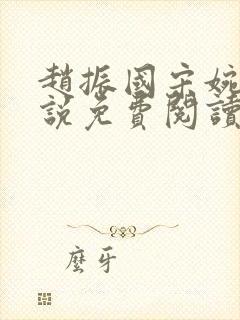 趙振國宋婉
說免費閱讀
麼牙